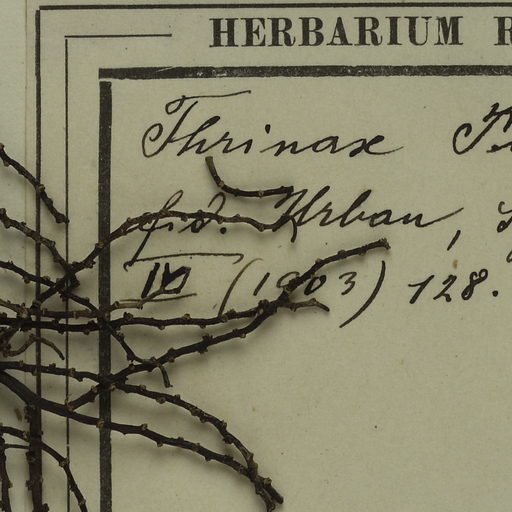 HERBARIUM
Thrinax
fid. Urban,
IV (1903) 128.